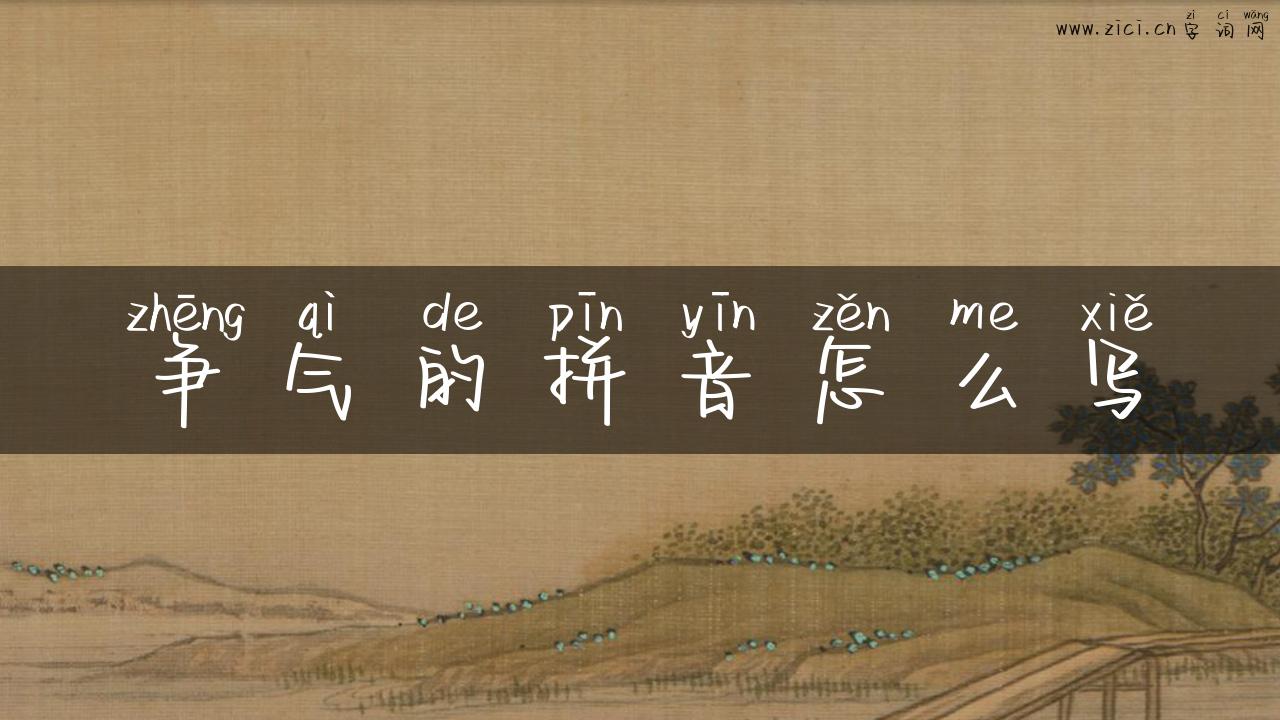 zì cí wǎng
www.zici.cn字词网
zhēng qì de pīn yīn zěn me xiě
争气的拼音怎么写